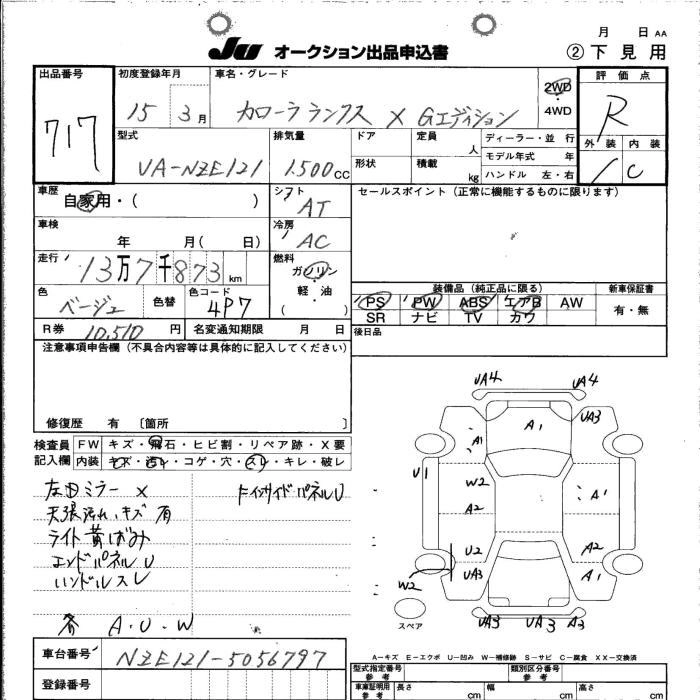 月 日 AA
JU オークション出品申込書
② 下見用
出品番号 717
初度登録年月 15 3月
車名・グレード カローラランクス X Gエディション
2WD・4WD
評価点 R
外装 内装 C
型式 UA-NZE121
排気量 1.500cc
ドア 形状
定員 人
積載 kg
ディーラー・並 行
モデル年式 年
ハンドル 左・右
車歴 自家用・( )
シフト AT
セールスポイント(正常に機能するものに限ります)
車検 年 月( 日)
冷房 AC
走行 13万7千873km
燃料 ガソリン・軽・油 ( )
色 ベージュ 色替 色コード 4P7
装備品(純正品に限る)
新車保証書
PS PW ABS エアB AW
SR ナビ TV カワ
有・無
R券 10,510円 名変通知期限 月 日
後日品
注意事項申告欄(不具合内容等は具体的に記入してください)
修復歴 有 〔箇所 〕
検査員記入欄
FW キズ・飛石・ヒビ割・リペア跡・X要
内装 キズ・汚レ・コゲ・穴・スレ・キレ・破レ
左ドミラー X
天張汚れ、キズ有
ライト黄ばみ
エンドパネルU
ハンドルスレ
インサイドパネルU
各 A・U・W
UA4 UA4
A1 UA3
A1
U1 W2
A2 A1
U2 A2
W2 UA3 A1
UA3 UA3 A3
スペア
A-キズ E-エクボ U-凹み W-補修跡 S-サビ C-腐食 XX-交換済
車台番号 NZE121-5056797
登録番号
型式指定番号 参考
類別区分番号 参考
車庫証明用 参考 長さ cm 幅 cm 高さ cm